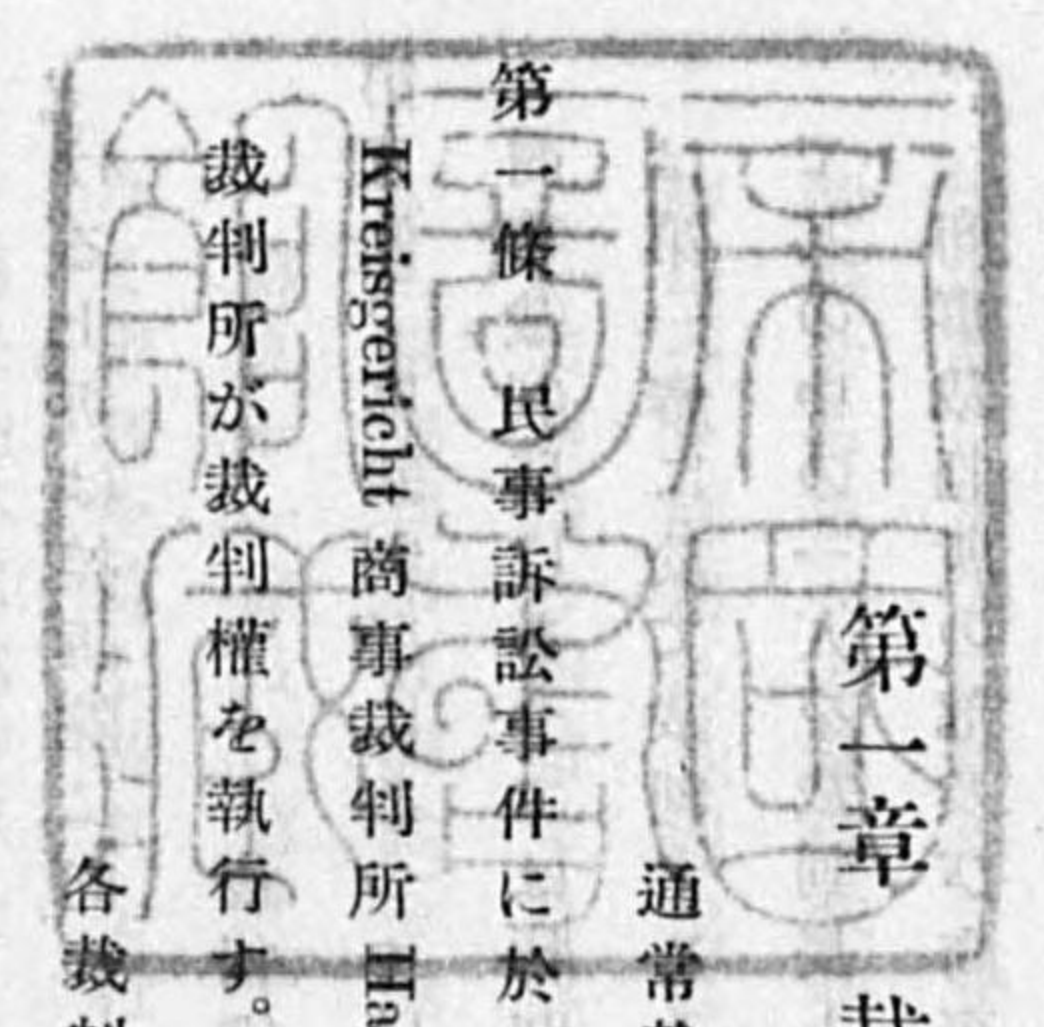 第一章 裁
通常
第一條 民事訴訟事件に於
Kreisgericht 商事裁判所 Ha
裁判所が裁判權を執行す。
各裁判